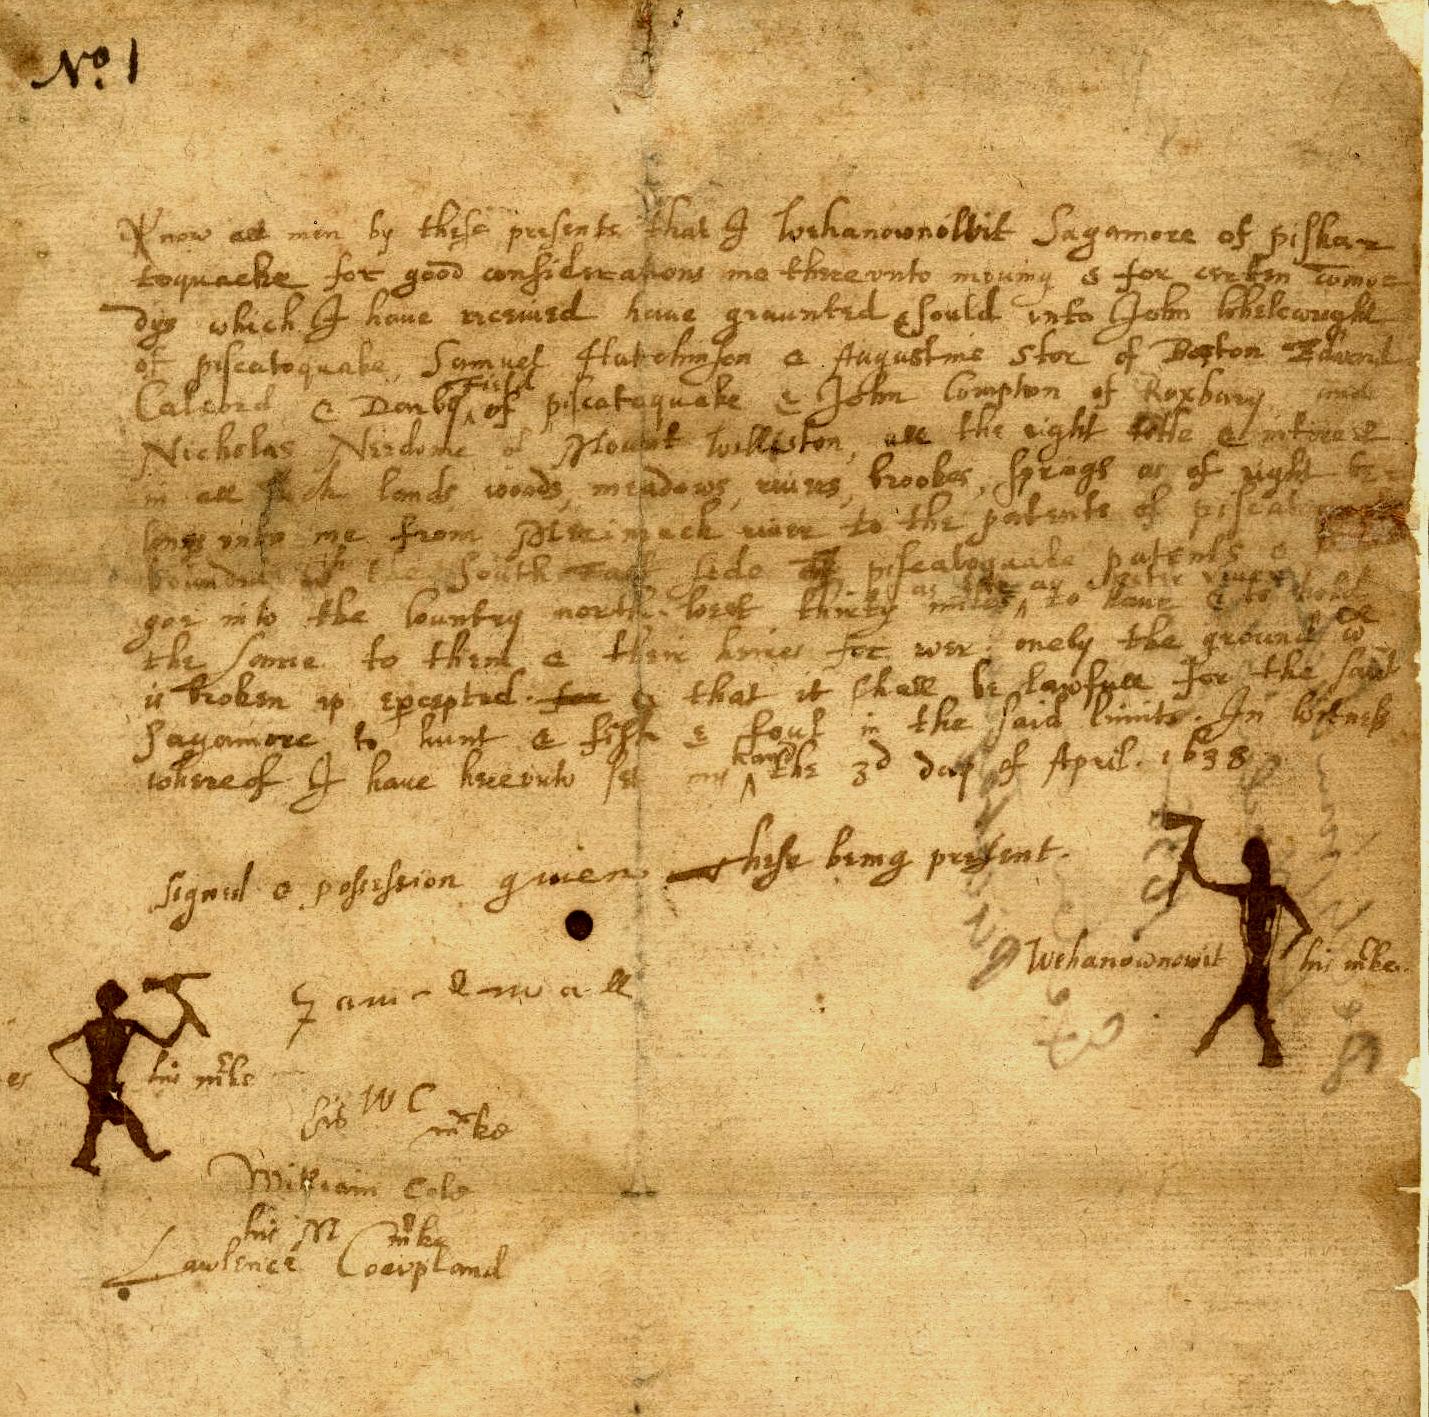 No. 1
Know all men by these presents that I Wehanownowit Sagamore of piska=
toquacke for good considerations me therevnto moving & for certen comoe
dys which I have received have graunted & sould vnto John Whelewright
of piscatoquake, Samuel Hutchinson & Augustine Stor of Boston Edward
Calcord & Darby Field of piscatoquake & John Compton of Roxbury and
Nicholas Needome of Mount Walliston, all the right title & interest
in all such lands, woods, meadows, rivers, brookes, springs as of right be=
longs vnto me from Merimack river to the patents of piscatoquake
bounded wth the South East side of piscatoquake patents & so to
goe into the Country north West thirty miles as far as Oyster river to have & to hold
the same to them & their heires for ever. onely the ground wch
is broken up excepted. for & that it shall be lawfull for the said
Sagamore to hunt & fish & foul in the said limits. In Witness
whereof I have herevnto set my hand the 3d day of April. 1638.
Signed & possession given these being present.
Wehanownowit his mke.
his mke
his W C mke
William Cole
his M mke
Lawlence Coevpland